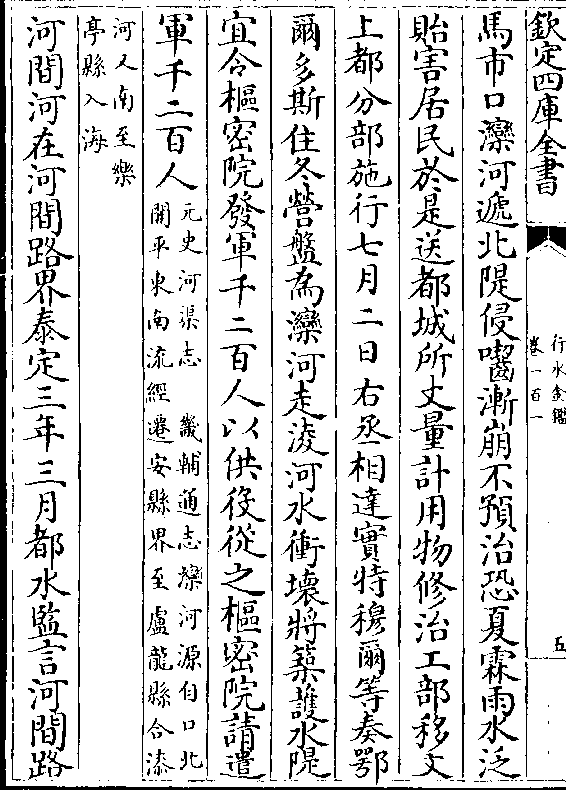 欽定四庫全書
行水金鑑
卷一百一
五
馬市口灤河遞北隄侵囓漸崩不預治恐夏霖雨水泛
貽害居民於是送都城所丈量計用物修治工部移文
上都分部施行七月二日右丞相達實特穆爾等奏鄂
爾多斯住冬營盤為灤河走淩河水衝壞將築護水隄
宜令樞密院發軍千二百人以供役從之樞密院請遣
軍千二百人元史河渠志　畿輔通志灤河源自口北
開平東南流經遷安縣界至盧龍縣合漆
河又南至樂
亭縣入海
河間河在河間路界泰定三年三月都水監言河間路